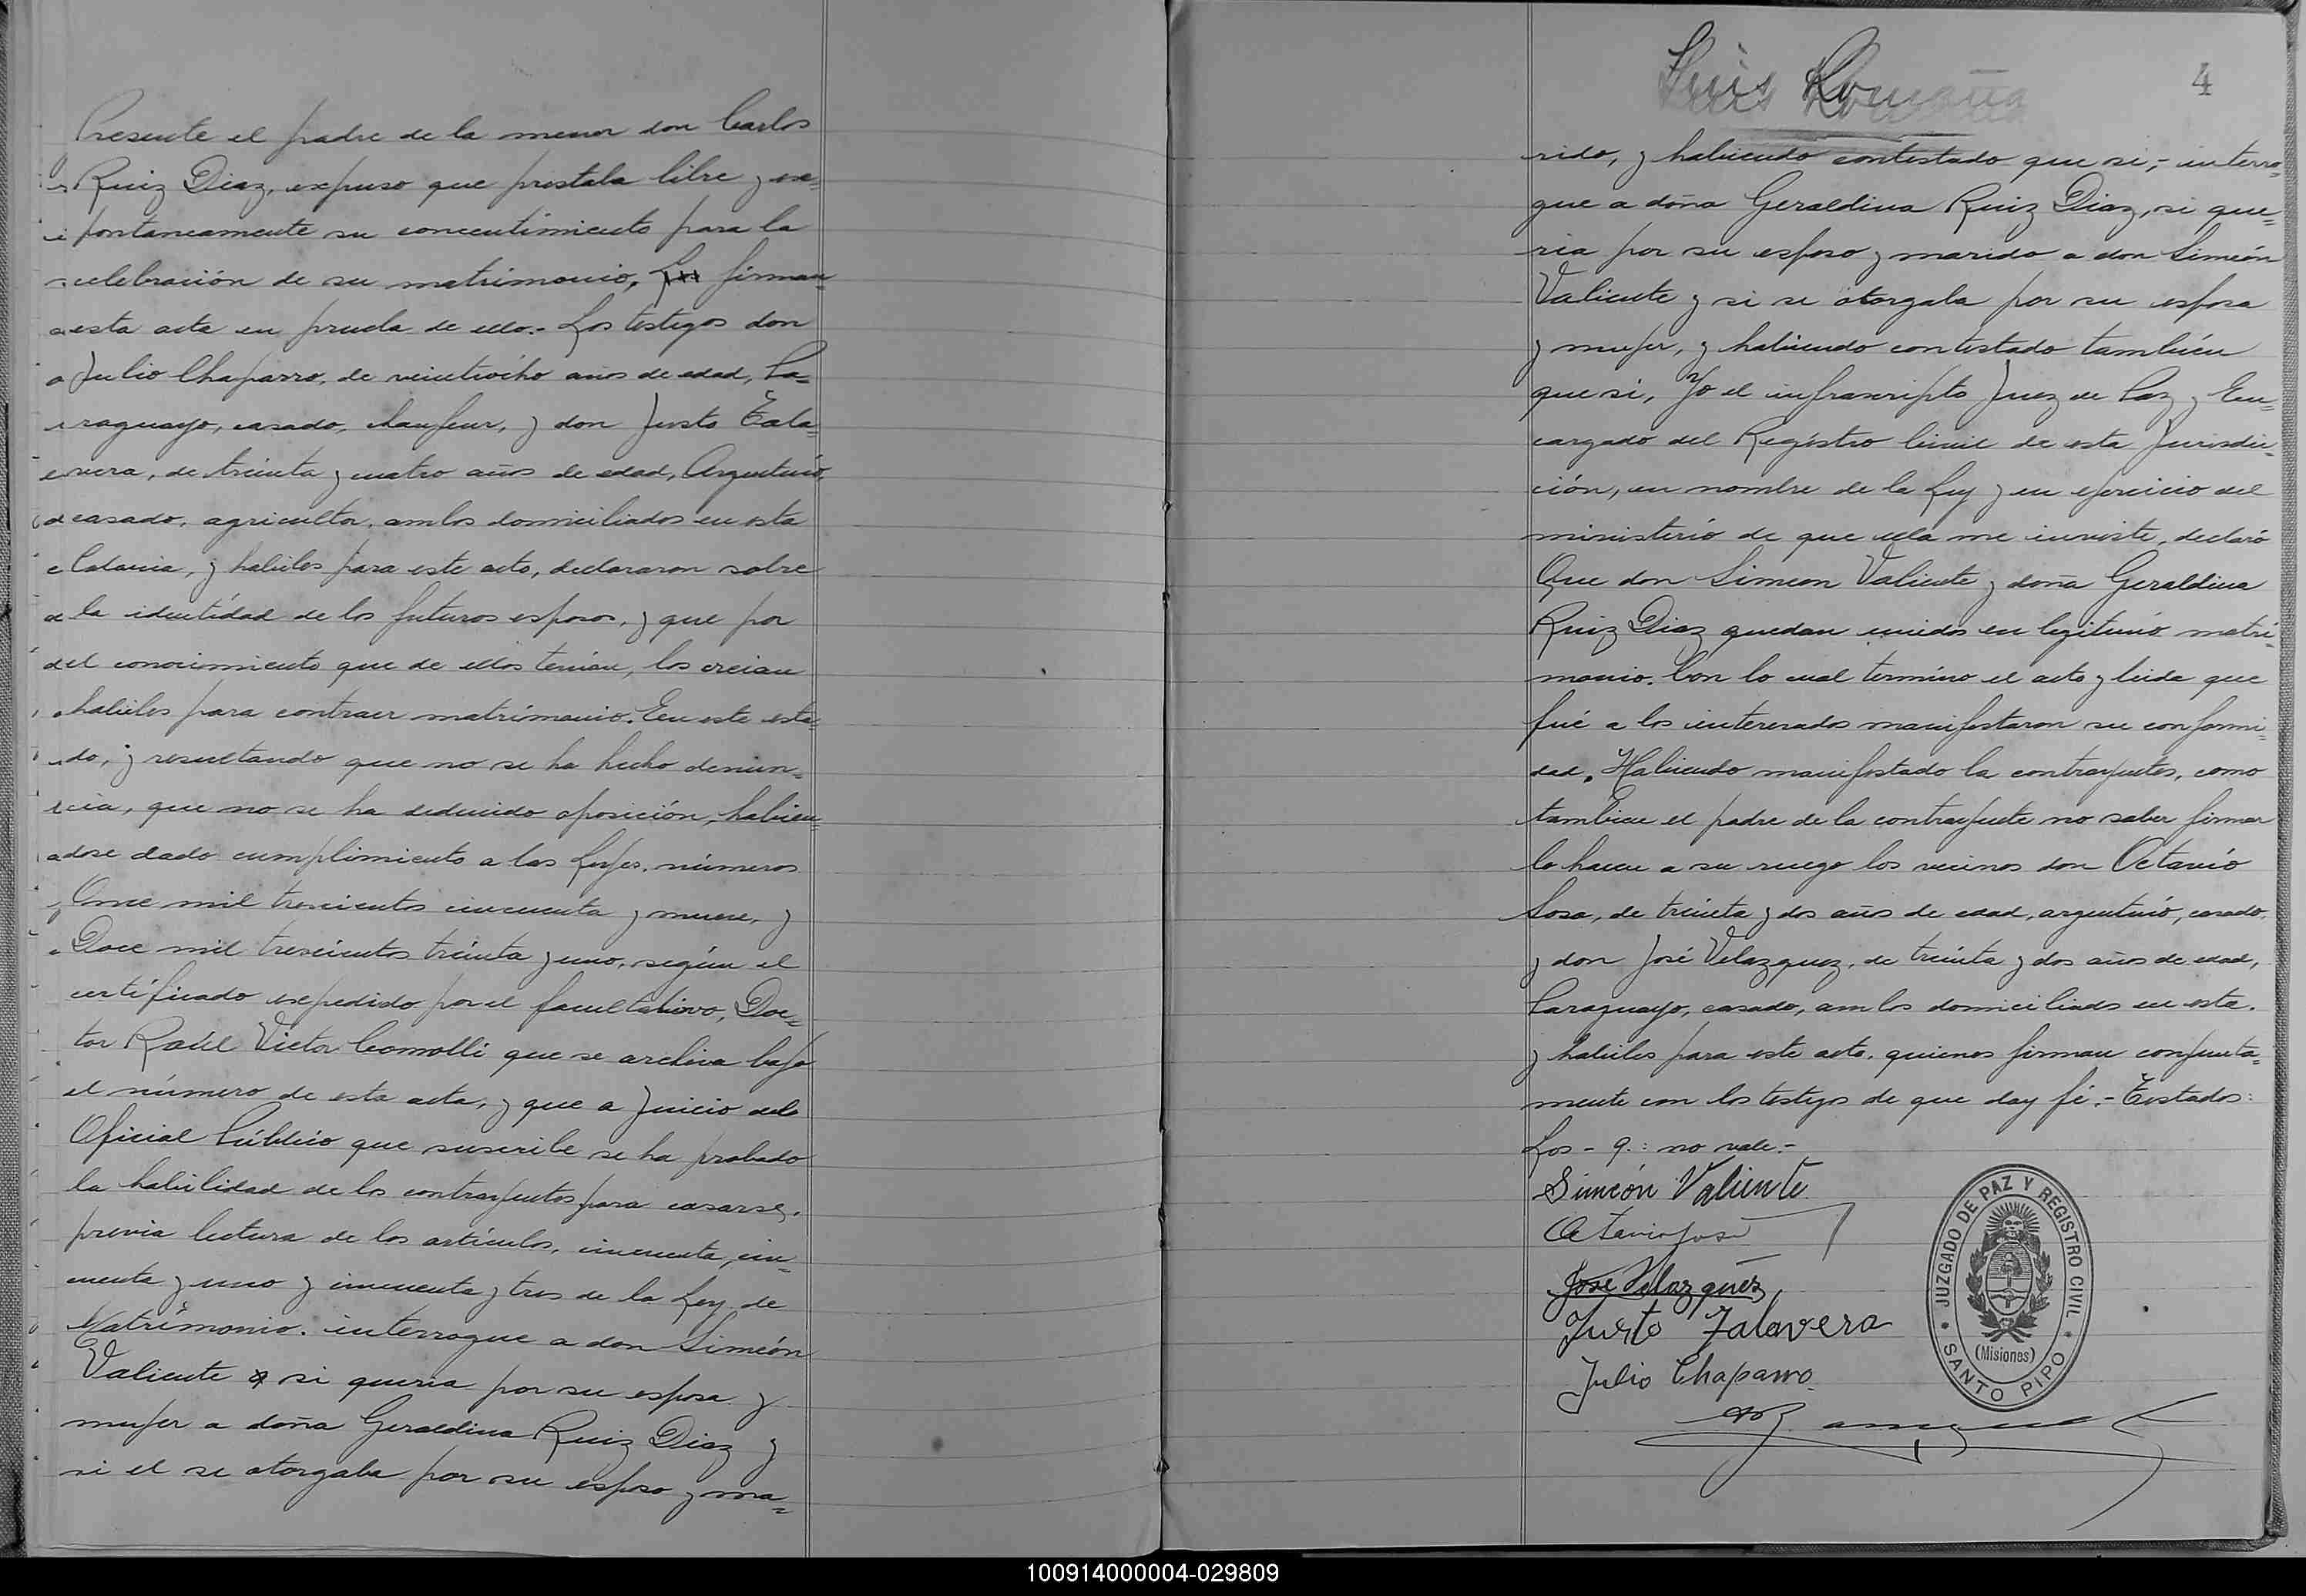 Presente el padre de la menor don Carlos
Ruiz Diaz, expuso que prestaba libre y es=
pontaneamente su concentimiento para la
celebración de su matrimonio. Los firman
esta acta en prueba de ello.- Los testigos don
Julio Chaparro, de veintiocho años de edad, Pa=
raguayo, casado, chaufeur, y don Justo Tala=
vera, de treinta y cuatro años de edad, Argentino,
casado, agricultor, ambos domiciliados en esta
Colonia, y habiles para este acto, declararon sobre
la identidad de los futuros esposos, y que por
del conocimiento que de ellos tenian, los creian
habiles para contraer matrimonio. En este esta=
do, y resultando que no se ha hecho denun=
cia, que no se ha deducido oposición, habien=
dose dado cumplimiento a las Leyes, números
Once mil trescientos cincuenta y nueve, y
Doce mil trescientos treinta y uno, según el
certificado expedido por el facultativo, Doc=
tor Raúl Victor Comolli que se archiva bajo
el número de esta acta, y que a Juicio del
Oficial Público que suscribe se ha probado
la habilidad de los contrayentes para casarse,
previa lectura de los artículos, cincuenta, cin=
cuenta y uno y cincuenta y tres de la Ley de
Matrimonio. interrogue a don Simeón
Valiente q si queria por su esposa y
mujer a doña Geraldina Ruiz Diaz y
si el se otorgaba por su esposo y ma=
Luis Romaña
4
rido, y habiendo contestado que si,- interro=
gue a doña Geraldina Ruiz Diaz, si que=
ria por su esposo y marido a don Simeón
Valiente y si se otorgaba por su esposa
y mujer, y habiendo contestado también
que si, Yo el infrascripto Juez de Paz y En=
cargado del Registro Civil de esta Jurisdic=
ción, en nombre de la Ley y en ejercicio del
ministerio de que ella me inviste, declaró
Que don Simeon Valiente y doña Geraldina
Ruiz Diaz quedan unidos en legitimo matri=
monio. Con lo cual termino el acto y leida que
fué a los interesados manifestaron su conformi=
dad. Habiendo manifestado la contrayentes, como
tambien el padre de la contrayente no saber firmar
lo hacen a su ruego los vecinos don Octavio
Sosa, de treinta y dos años de edad, argentino, casado,
y don José Velazquez, de treinta y dos años de edad,
Paraguayo, casado, ambos domiciliados en esta.
y habiles para este acto, quienes firman conjunta=
mente con los testigos de que doy fé.- Testados:
Los - q.: no vale.-
Simeón Valiente
Octavio Sosa
José Velazquez
Justo Talavera
Julio Chaparro
JUZGADO DE PAZ Y REGISTRO CIVIL
(Misiones)
SANTO PIPO
100914000004-029809